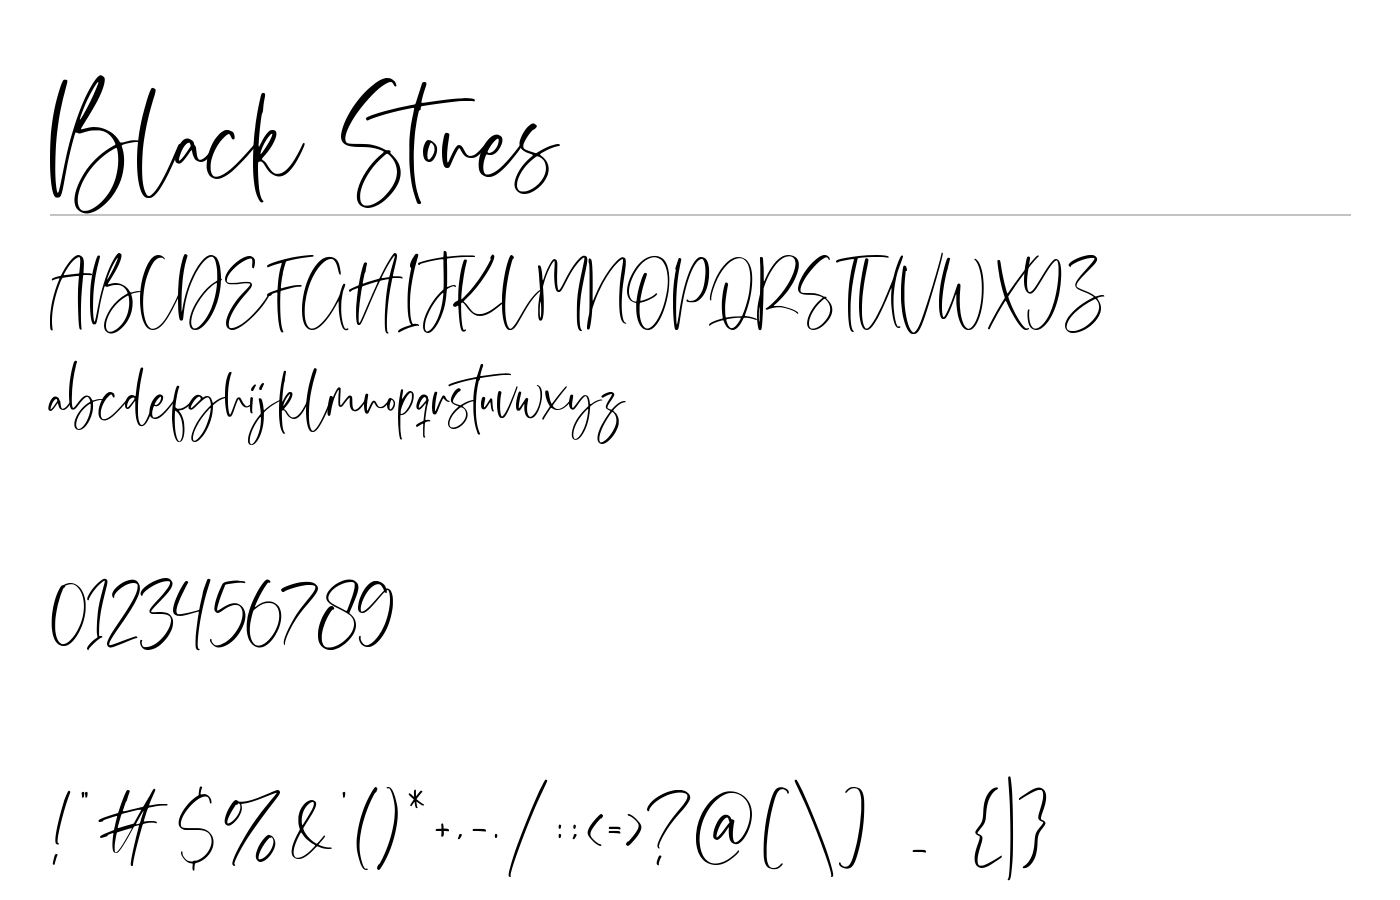 Black Stones
ABCDEFGHIJKLMNOPQRSTUVWXYZ
abcdefghijklmnopqrstuvwxyz
0123456789
!"#$%&'()*+,-./:;<=>?@[\]_{|}